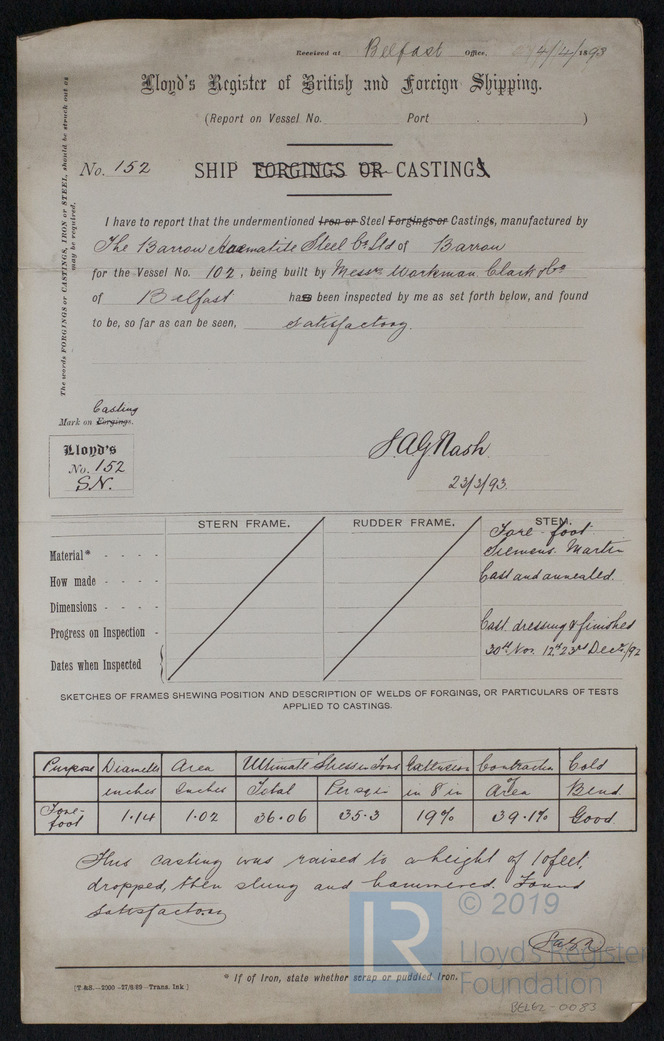 Received at Belfast Office, 4/4/1893
Lloyd's Register of British and Foreign Shipping.
(Report on Vessel No. Port )
No. 152 SHIP FORGINGS OR CASTINGS
The words FORGINGS or CASTINGS, IRON or STEEL, should be struck out as may be required.
I have to report that the undermentioned Iron or Steel Forgings or Castings, manufactured by
The Barrow Haematite Steel Co Ltd of Barrow
for the Vessel No. 102, being built by Messrs Workman Clark & Co
of Belfast has been inspected by me as set forth below, and found
to be, so far as can be seen, satisfactory.
Casting
Mark on Forgings.
Lloyd's
No. 152
S.N.
S.A.G Nash
23/3/93.
STERN FRAME. RUDDER FRAME. STEM.
Fore-foot
Material* - - - - Siemens Martin
How made - - - - Cast and annealed.
Dimensions - - - -
Progress on Inspection - Cast. dressing & finished
Dates when Inspected 30th Nov. 12th 23rd Decr/92
SKETCHES OF FRAMES SHEWING POSITION AND DESCRIPTION OF WELDS OF FORGINGS, OR PARTICULARS OF TESTS
APPLIED TO CASTINGS.
Purpose Diameter Area Ultimate Stress in Tons Extension Contraction Cold
inches Inches Total Per sq in in 8 in Area Bend
Fore-foot 1.14 1.02 36.06 35.3 19% 39.1% Good
This casting was raised to a height of 10 feet,
dropped, then slung and hammered. Found
satisfactory
* If of Iron, state whether scrap or puddled Iron.
(T.&S.—2000—27/8/89—Trans. Ink)
© 2019
LR
Lloyd's Register
Foundation
BEL62-0083